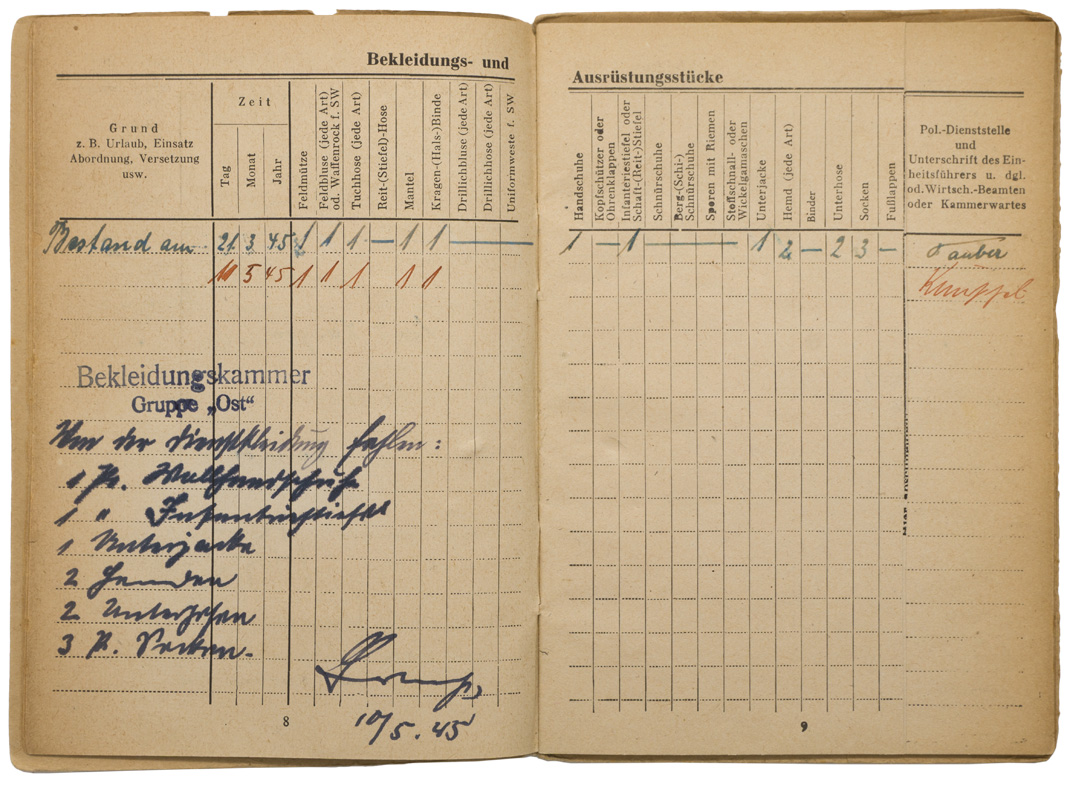 Bekleidungs- und
Grund
z. B. Urlaub, Einsatz
Abordnung, Versetzung
usw.
Zeit
Tag
Monat
Jahr
Feldmütze
Feldbluse (jede Art)
od. Waffenrock f. SW
Tuchhose (jede Art)
Reit-(Stiefel)-Hose
Mantel
Kragen-(Hals-)Binde
Drillichbluse (jede Art)
Drillichhose (jede Art)
Uniformweste f. SW
Bestand am 21. 3. 45 1 1 1 — 1 1 — — —
10 5 45 1 1 1 1 1
Bekleidungskammer
Gruppe „Ost“
Von der Dienstkleidung fehlen:
1 P. Wollhandschuhe
1 " Infanteriestiefel
1 Unterjacke
2 Hemden
2 Unterhosen
3 P. Socken.
10/5.45
8
Ausrüstungsstücke
Handschuhe
Kopfschützer oder
Ohrenklappen
Infanteriestiefel oder
Schaft-(Reit-)Stiefel
Schnürschuhe
Berg-(Schi-)
Schnürschuhe
Sporen mit Riemen
Stoffschnall- oder
Wickelgamaschen
Unterjacke
Hemd (jede Art)
Binder
Unterhose
Socken
Fußlappen
Pol.-Dienststelle
und
Unterschrift des Ein-
heitsführers u. dgl.
od. Wirtsch.-Beamten
oder Kammerwartes
1 — 1 — — — — 1 2 — 2 3 — Tauber
9